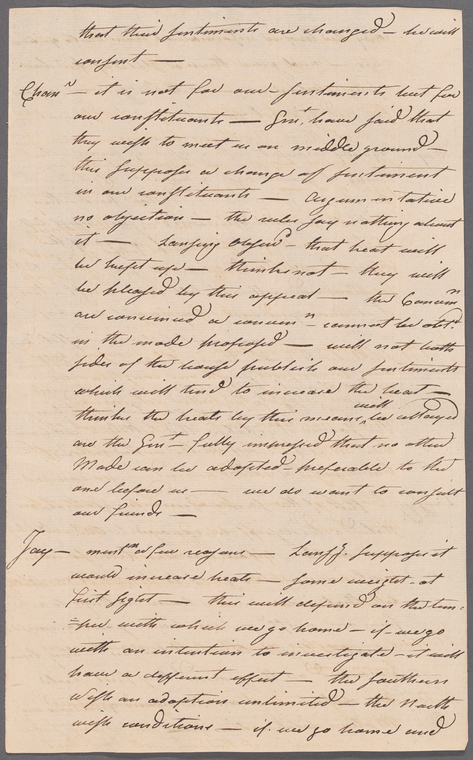 that their sentiments are changed — he will
consent —
Chanr — it is not for our sentiments but for
our constituants — Gent. have said that
they wish to meet us on middle ground —
this supposes a change of sentiment
in our constituants — argumentative
no objection — the rules say nothing about
it — Lansing observd — that heat will
be kept up — thinks not — they will
be pleased by this appeal — the Convenn
are convened a convenn — cannot be obtd
in the mode proposed — will not both
sides of the house publish our sentiments
which will tend to increase the heat —
thinks the heats by this means will be allayed
are the Gent — fully impressed that no other
Mode can be adopted — preferable to the
one before us — we do want to consult
our friends —
Jay — a few reasons — Lansg. supposes it
would increase heats — some weight at
first sight — this will depend on the tem-
=per with which we go home — if we go
with an intention to investigate — it will
have a different effect — the Southern
Wish an adoption unlimited — the North
wish conditions — if we go home and